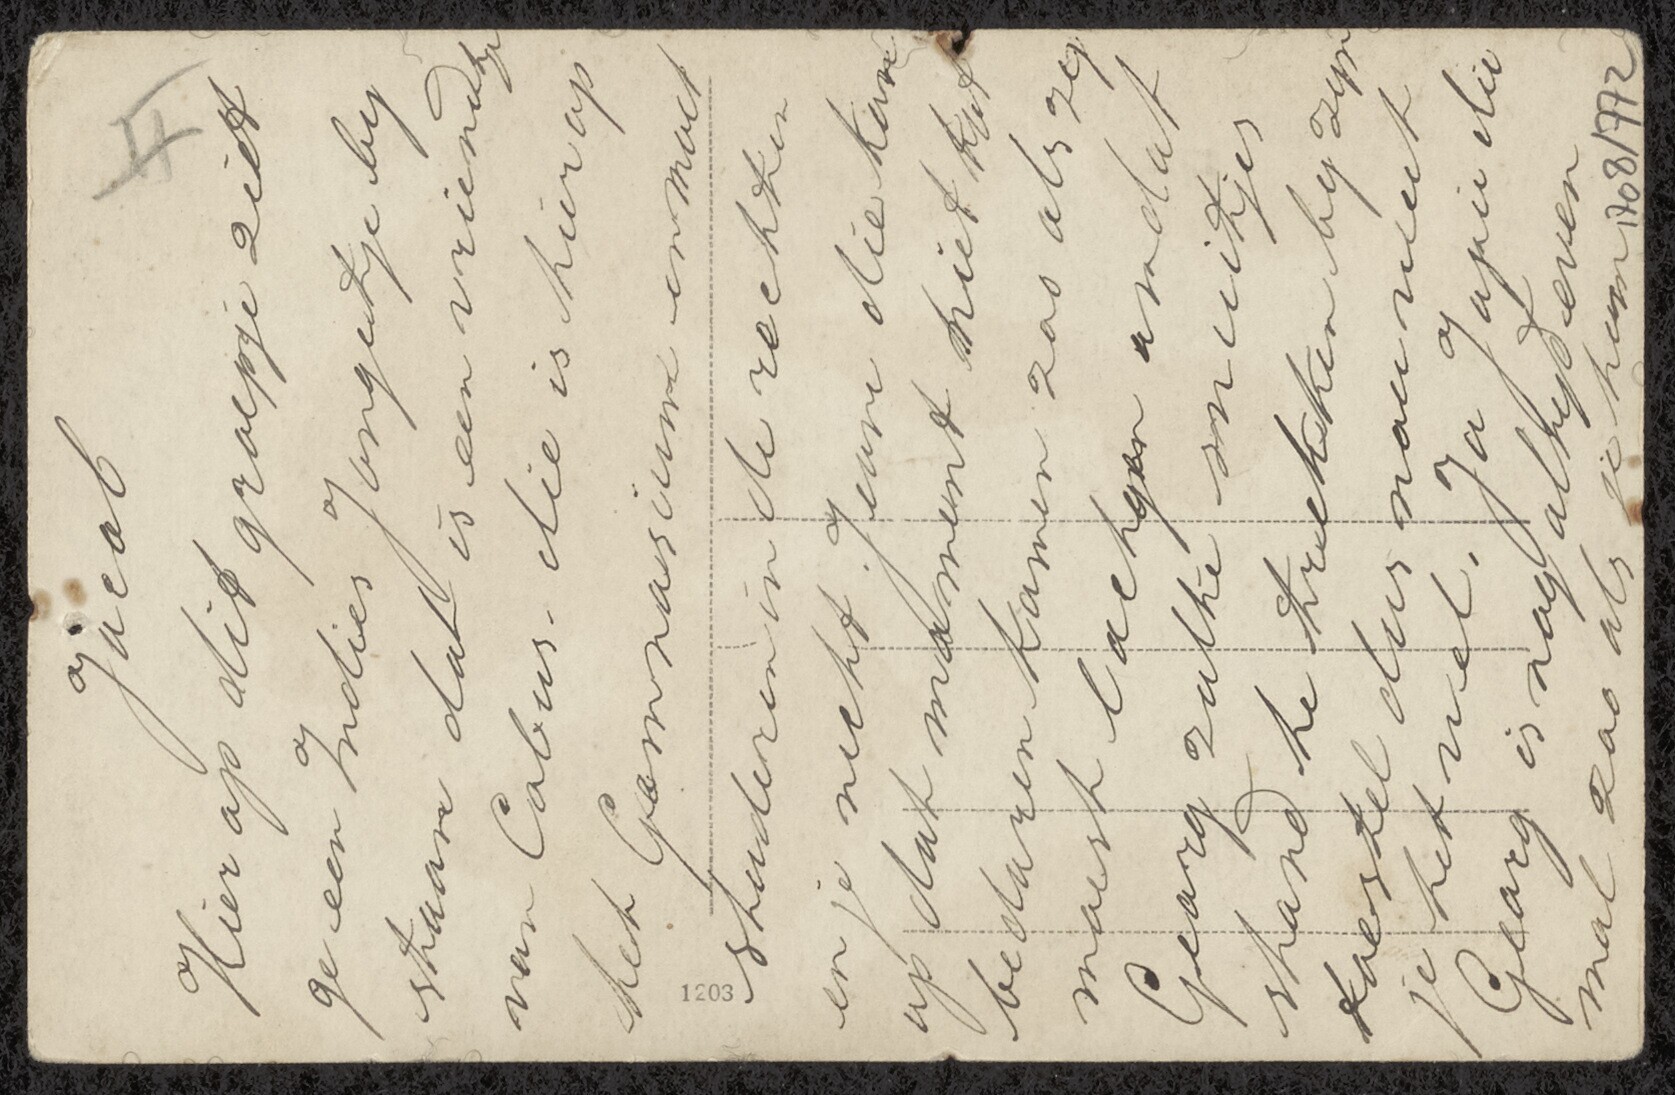 II
Jacob
Hier op dit groepje ziet
ge een Indies Jongetje by
staan dat is een vriendtje
van Cobus. die is hier op
het Gomnasium en moet
studeren in de rechten
en je neef Jeun die kon
op dat moment niet tot
bedaren komen zoo als zeg
moest lachgen omdat
Georg zulke snuitjes
stand te trekken by zyn
toestel dus nou niet
je het wel. Ja Japie die
Georg is nog altyd even
mal zoo als je hem
1203
1708/1772